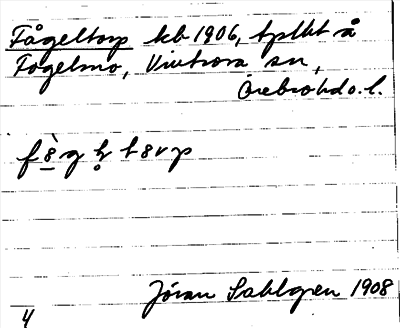 Fågeltorp kb 1906, tplht å
Fogelmo, Vintrosa sn,
Örebro hd o. l.
Jöran Sahlgren 1908
4